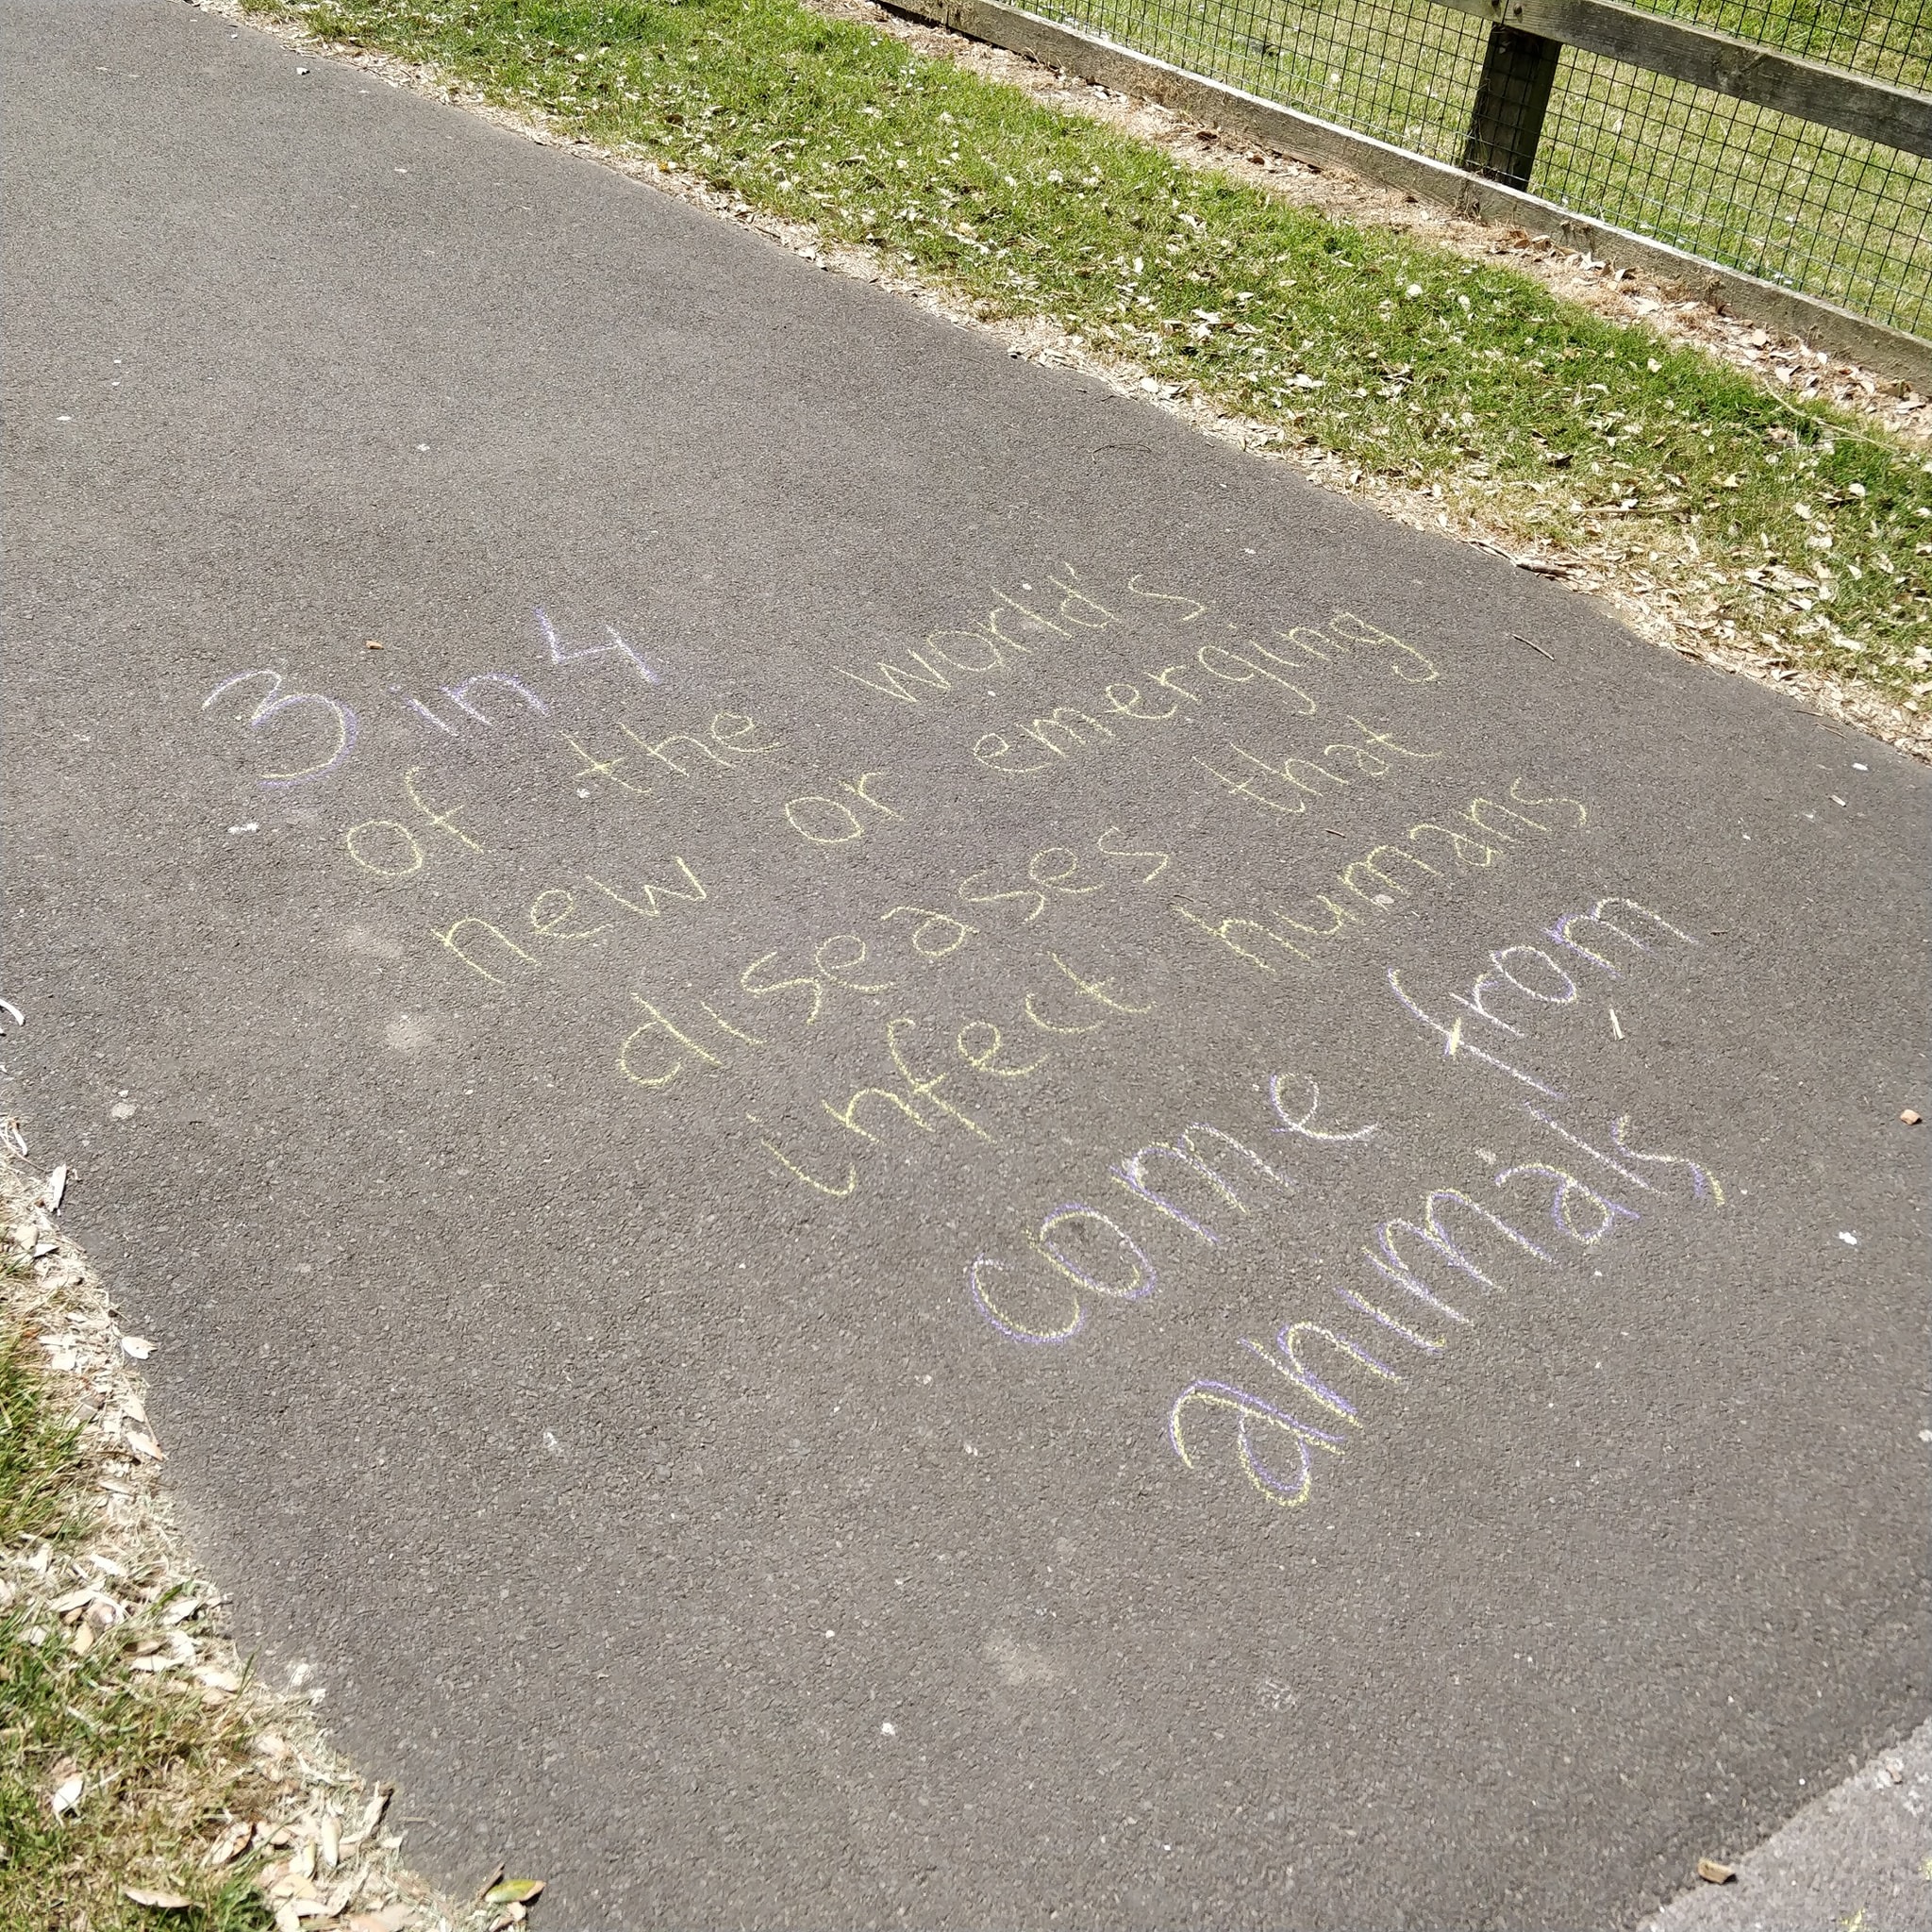 3 in 4
of the world's
new or emerging
diseases that
infect humans
come from
animals